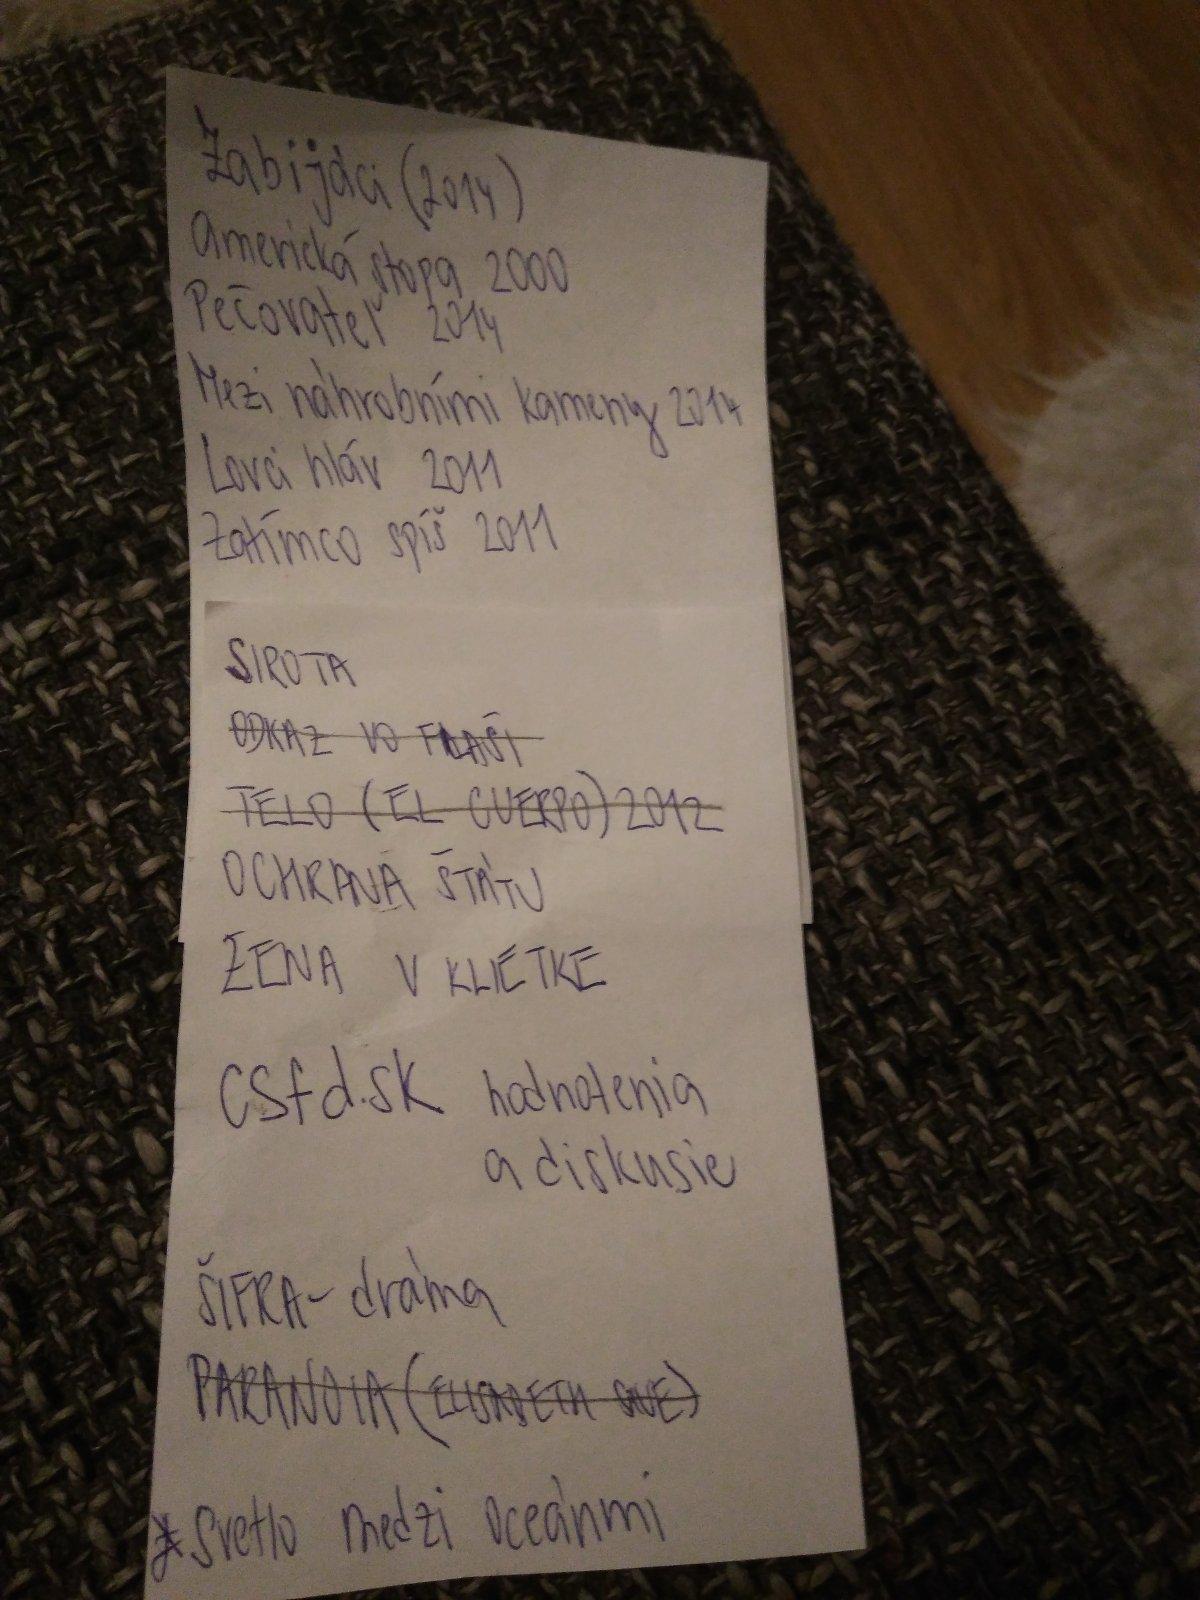 Žabijáci (2014)
Americká stopa 2000
Pečovateľ 2014
Mezi náhrobními kameny 2014
Lovci hláv 2011
Zatímco spíš 2011
SIROTA
ODKAZ VO FĽAŠI
TELO (EL CUERPO) 2012
OCHRANA ŠTÁTU
ŽENA V KLIETKE
CSfd.sk hodnotenia
a diskusie
ŠIFRA - dráma
PARANOIA (ELISABETH SUE)
* Svetlo medzi oceánmi